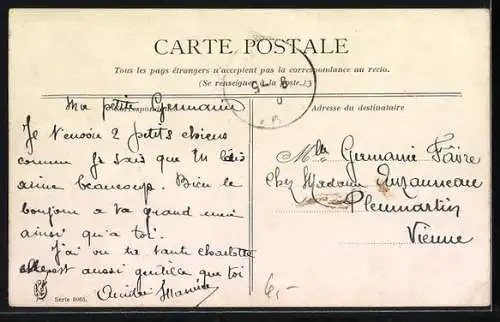 CARTE POSTALE
Tous les pays étrangers n'acceptent pas la correspondance au recto.
(Se renseigner à la Poste.)
Correspondance
Adresse du destinataire
Ma petite Germaine
Je t'envoie 2 petits chiens
comme je sais que tu les
aime beaucoup. Bien le
bonjour a ta grand
ainsi qu'a toi.
J'ai vu ta tante charlotte
elle est aussi gentille que toi
Mlle Germaine Faivre
chez Madame
Pleumartin
Vienne
Série
6,-